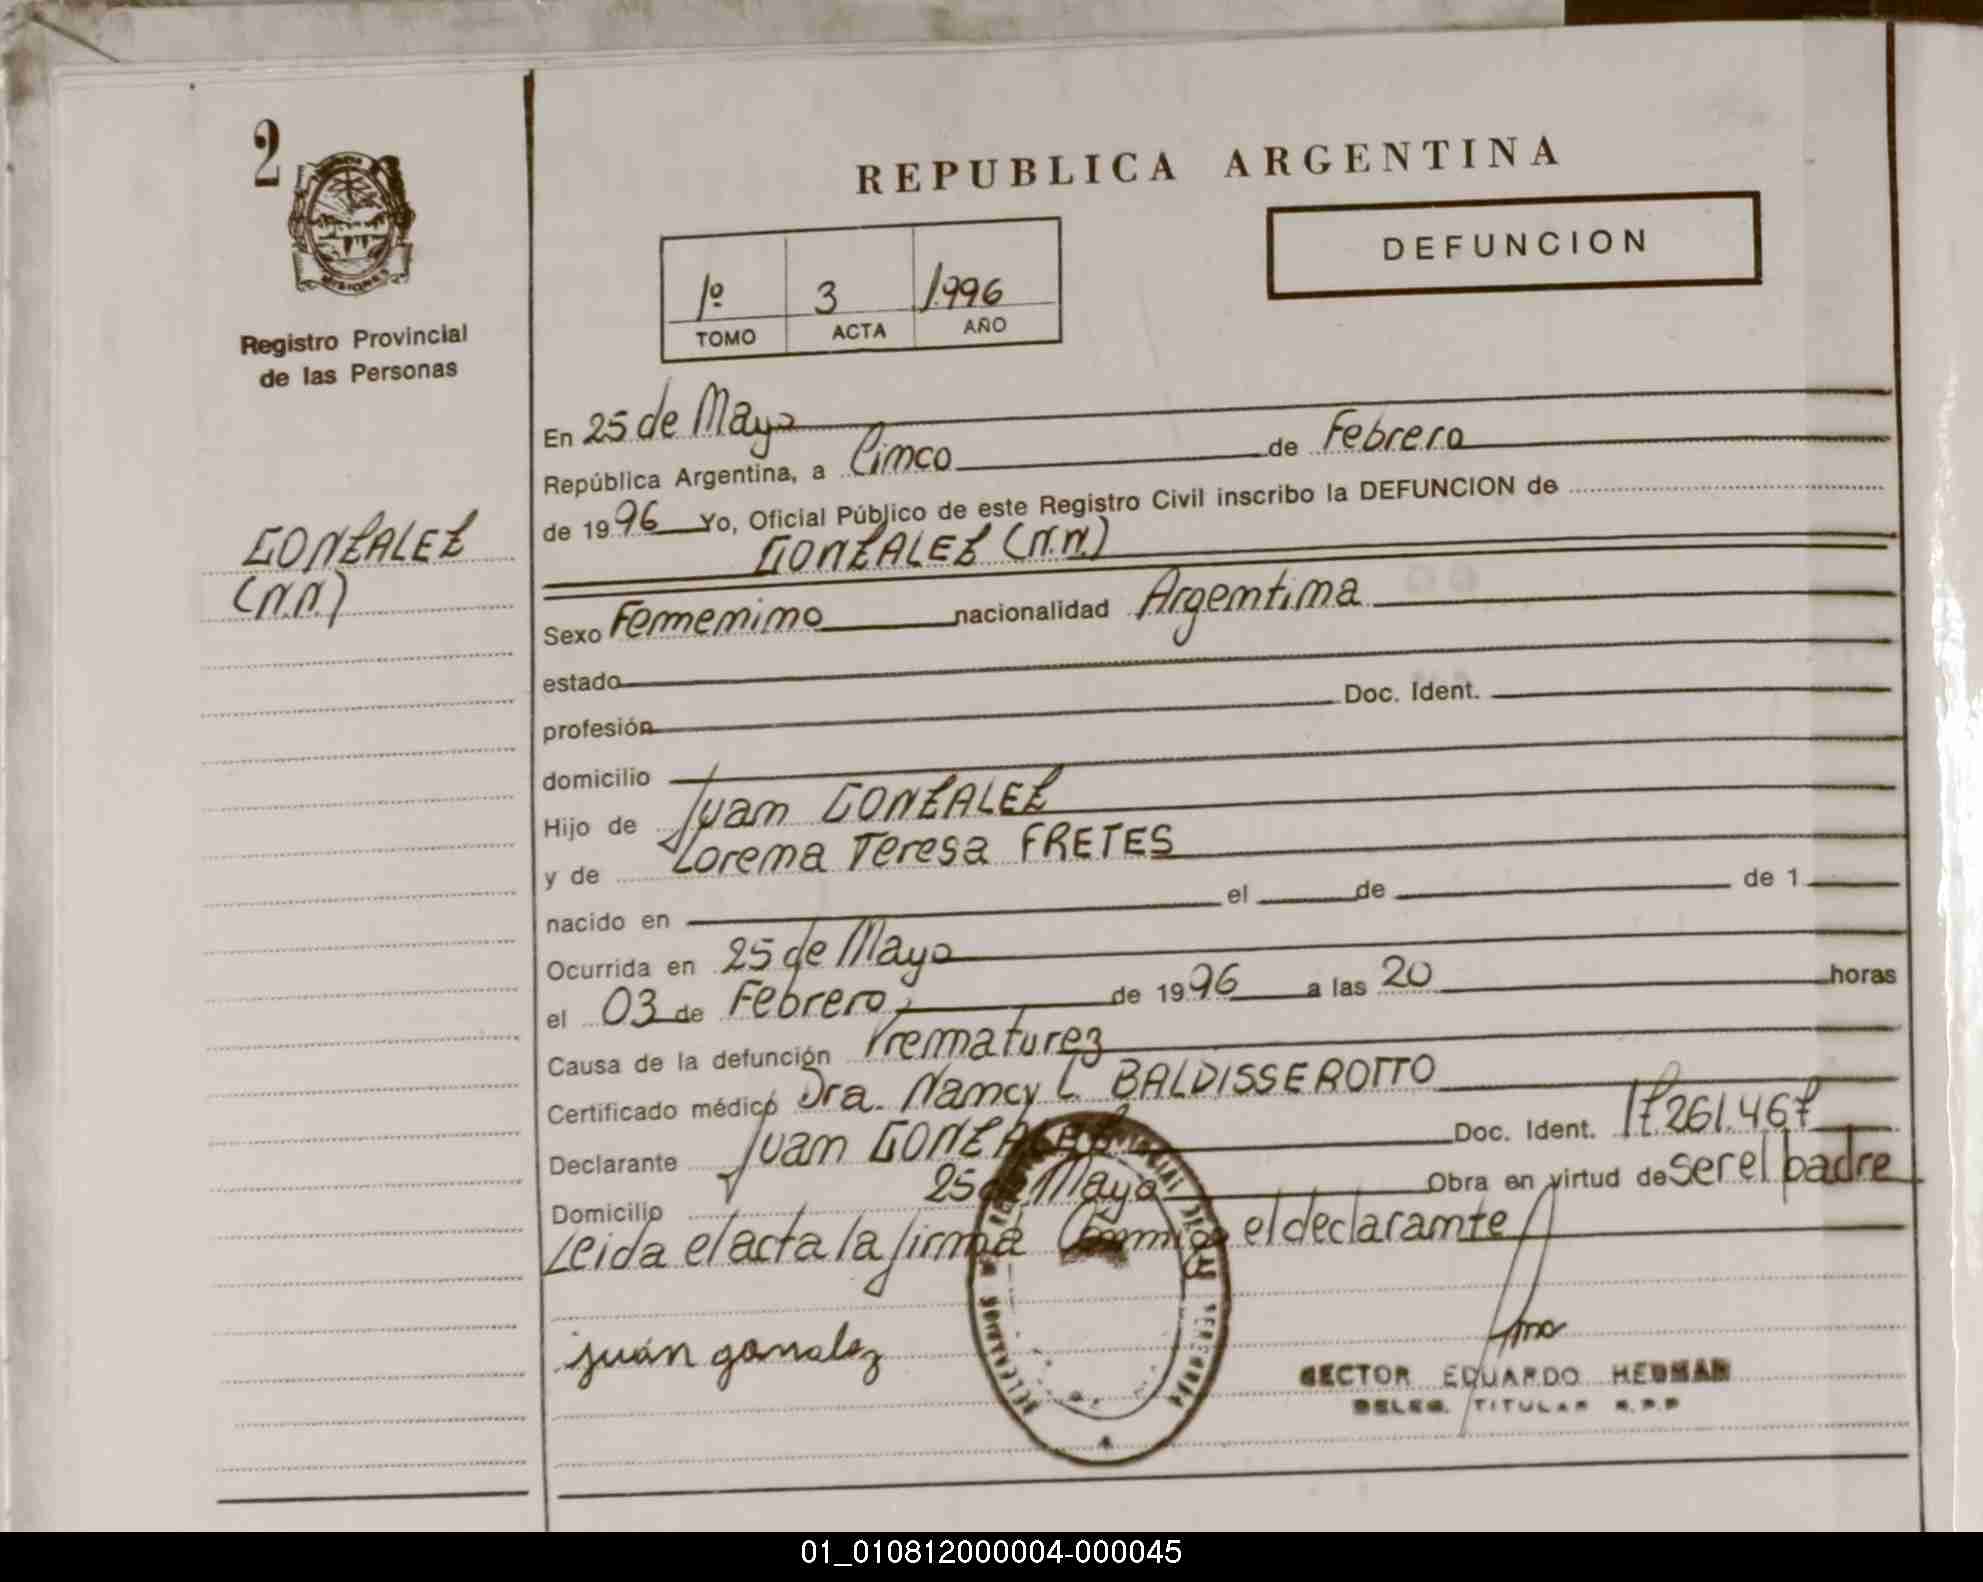 2
MISIONES
Registro Provincial
de las Personas
GONZALEZ
(N.N.)
REPUBLICA ARGENTINA
DEFUNCION
1º 3 1996
TOMO ACTA AÑO
En 25 de Mayo
República Argentina, a Cinco de Febrero
de 1996 Yo, Oficial Público de este Registro Civil inscribo la DEFUNCION de
GONZALEZ (N.N.)
Sexo Femenino nacionalidad Argentina
estado
profesión Doc. Ident.
domicilio
Hijo de Juan GONZALEZ
y de Lorena Teresa FRETES
nacido en el de de 1
Ocurrida en 25 de Mayo
el 03 de Febrero, de 1996 a las 20 horas
Causa de la defunción Prematurez
Certificado médico Dra. Nancy L. BALDISSEROTTO
Declarante Juan GONZALEZ Doc. Ident. 17.261.467
Domicilio 25 de Mayo Obra en virtud de ser el padre
Leida el acta la firma Conmigo el declarante
juán gonzalez
HECTOR EDUARDO HEDMAN
DELEG. TITULAR R.P.P
01_010812000004-000045